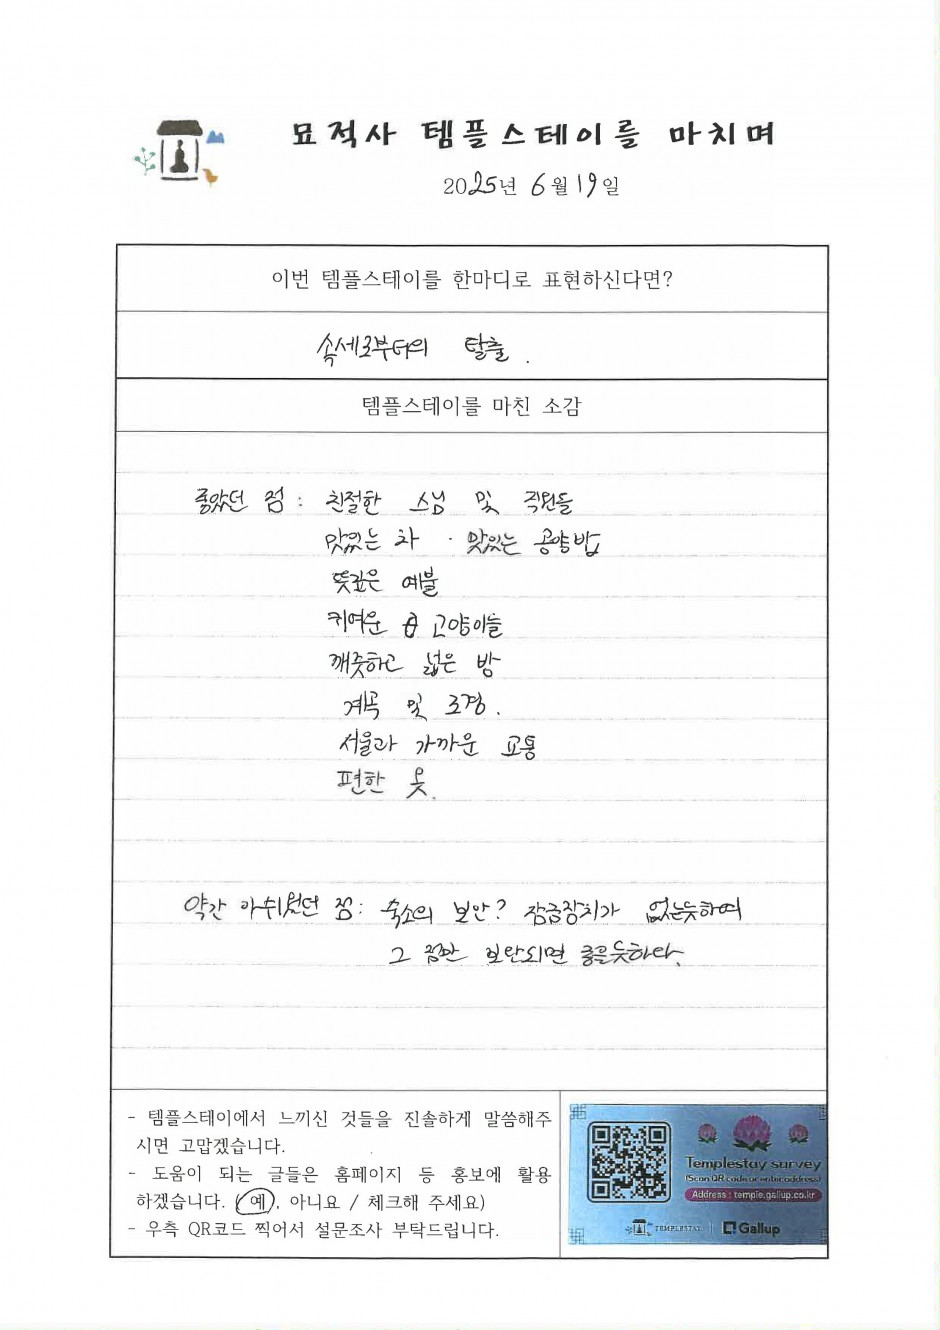 묘적사 템플스테이를 마치며
2025년 6월 19일
이번 템플스테이를 한마디로 표현하신다면?
속세로부터의 탈출.
템플스테이를 마친 소감
좋았던 점 : 친절한 스님 및 직원들
맛있는 차 · 맛있는 공양밥
뜻깊은 예불
귀여운 고양이들
깨끗하고 넓은 방
계곡 및 조경.
서울과 가까운 교통
편한 옷.
약간 아쉬웠던 점 : 숙소의 보안? 잠금장치가 없는듯하여
그 점만 보완되면 좋을듯하다.
- 템플스테이에서 느끼신 것들을 진솔하게 말씀해주
시면 고맙겠습니다.
- 도움이 되는 글들은 홈페이지 등 홍보에 활용
하겠습니다. (예, 아니요 / 체크해 주세요)
- 우측 QR코드 찍어서 설문조사 부탁드립니다.
Templestay survey
(Scan QR code or enter address)
Address : temple.gallup.co.kr
TEMPLESTAY | Gallup